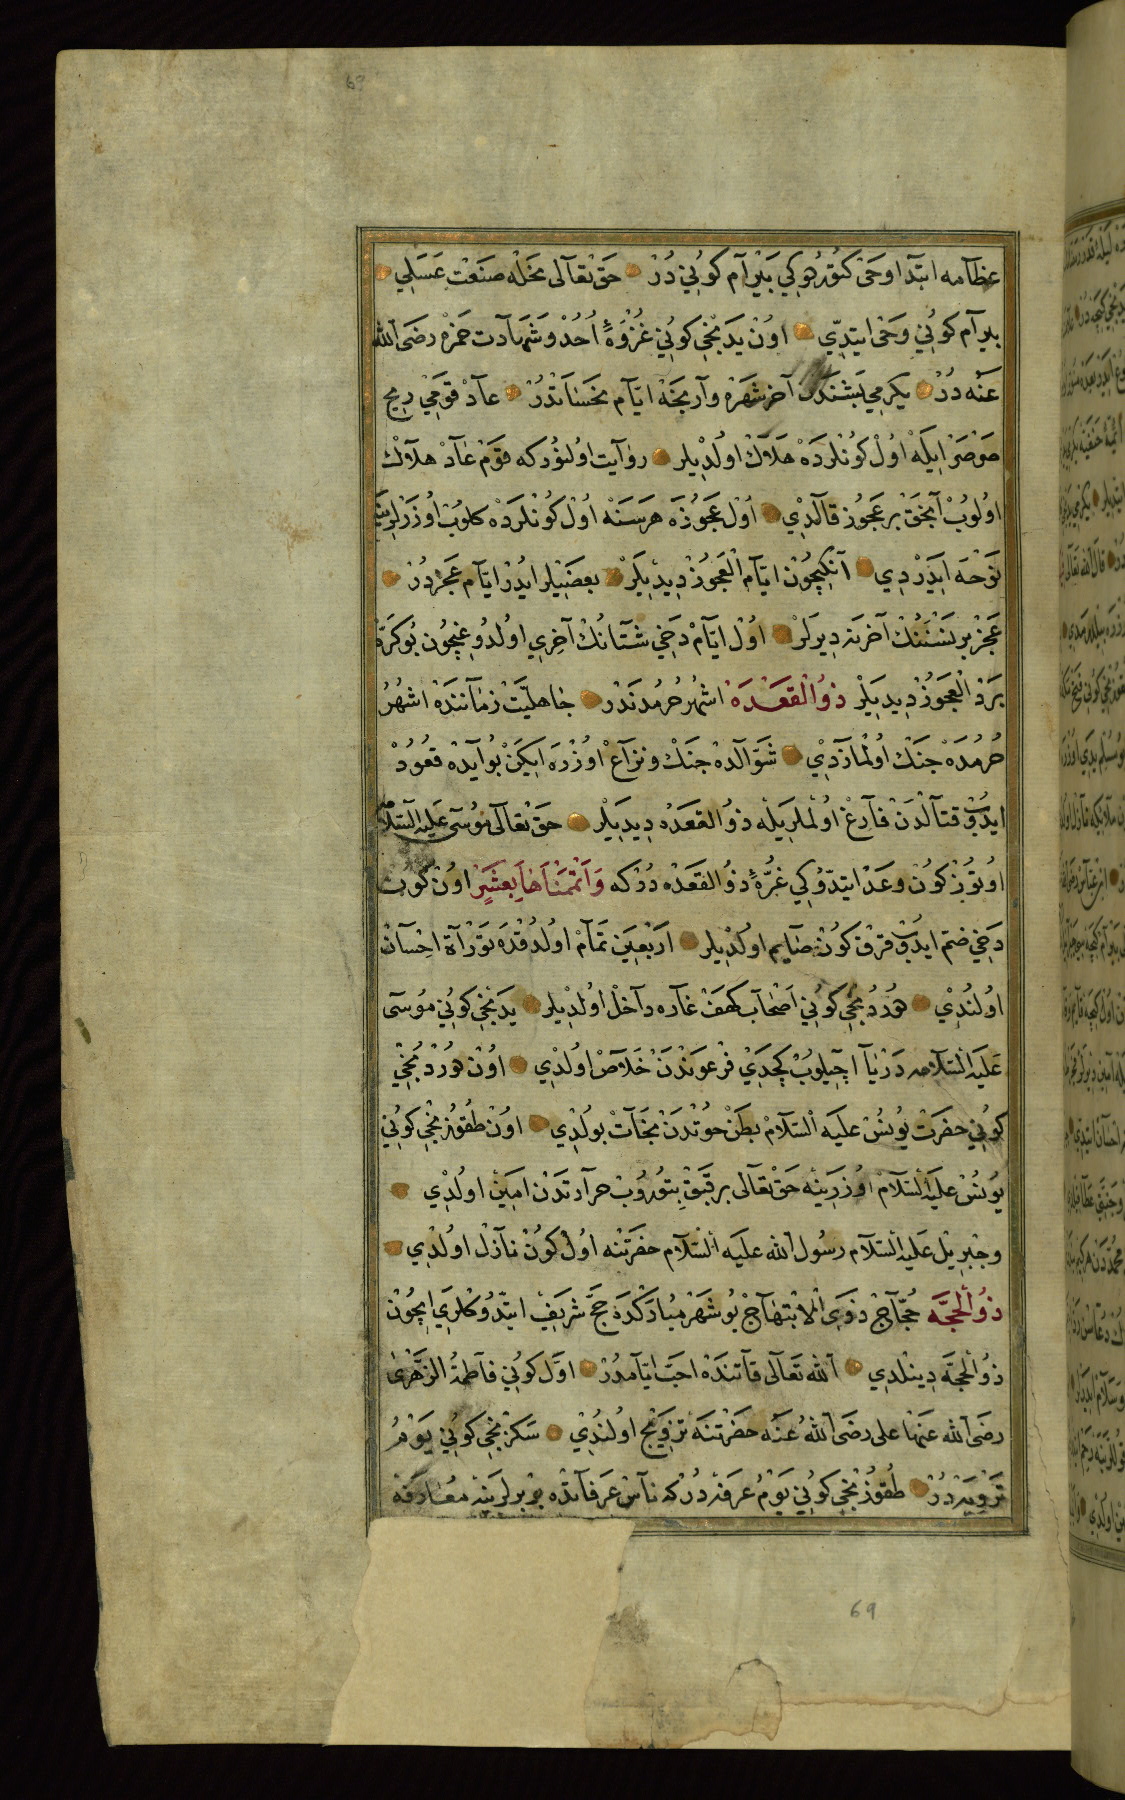 عظامه ابتدا وحى كتوردوكى بيرام كونيدر حق تعالى نحله صنعت عسلى
بيرام كونى وحى ايتدى اون يدنجى كونى غزوهٔ احد و شهادت حمزه رضى الله
عنه در يكرمى بشندن آخر شهره وارنجه ايام نحساتدر عاد قومى ريح
صرصر ايله اول كونلرده هلاك اولديلر روايت اولنور كه قوم عاد هلاك
اولوب آنجق بر عجوز قالدى اول عجوزه هر سنه اول كونلرده كلوب اوزرلرينه
نوحه ايدردى آنكيچون ايام العجوز ديديلر بعضيلر ايدر ايام عجزدر
عجز بر نسنه‌نك آخرينه ديرلر اول ايام دخى شتانك آخرى اولدوغيچون بو كره
برد العجوز ديديلر ذو القعده اشهر حرمدندر جاهليت زماننده اشهر
حرمده جنك اولمازدى شوالده جنك و نزاع اوزره ايكن بو آيده قعود
ايدوب قتالدن فارغ اولملريله ذو القعده ديديلر حق تعالى موسى عليه السلامه
اوتوز كون وعد ايتدوكى غرهٔ ذو القعده در كه وَأَتْمَمْنَاهَا بِعَشْرٍ اون كون
دخى ضم ايدوب قرق كون صايم اولديلر اربعين تمام اولدقده توراة احسان
اولندى دوردنجى كونى اصحاب كهف غاره داخل اولديلر يدنجى كونى موسى
عليه السلامه دريا آچيلوب كچدى فرعوندن خلاص اولدى اون دوردنجى
كونى حضرت يونس عليه السلام بطن حوتدن نجات بولدى اون طقوزنجى كونى
يونس عليه السلام اوزرينه حق تعالى بر قبق بتوروب حرارتدن امين اولدى
وجبريل عليه السلام رسول الله عليه السلام حضرتنه اول كون نازل اولدى
ذو الحجه حجاج ذوى الابتهاج بو شهر مباركده حج شريف ايتدوكلرى ايچون
ذو الحجه دينلدى الله تعالى قاتنده احب ايامدر اول كونى فاطمة الزهرى
رضى الله عنها على رضى الله عنه حضرتنه تزويج اولندى سكزنجى كونى يوم
ترويه در طقوزنجى كونى يوم عرفه در كه ناس عرفاتده بر برلرينه معارفه
69